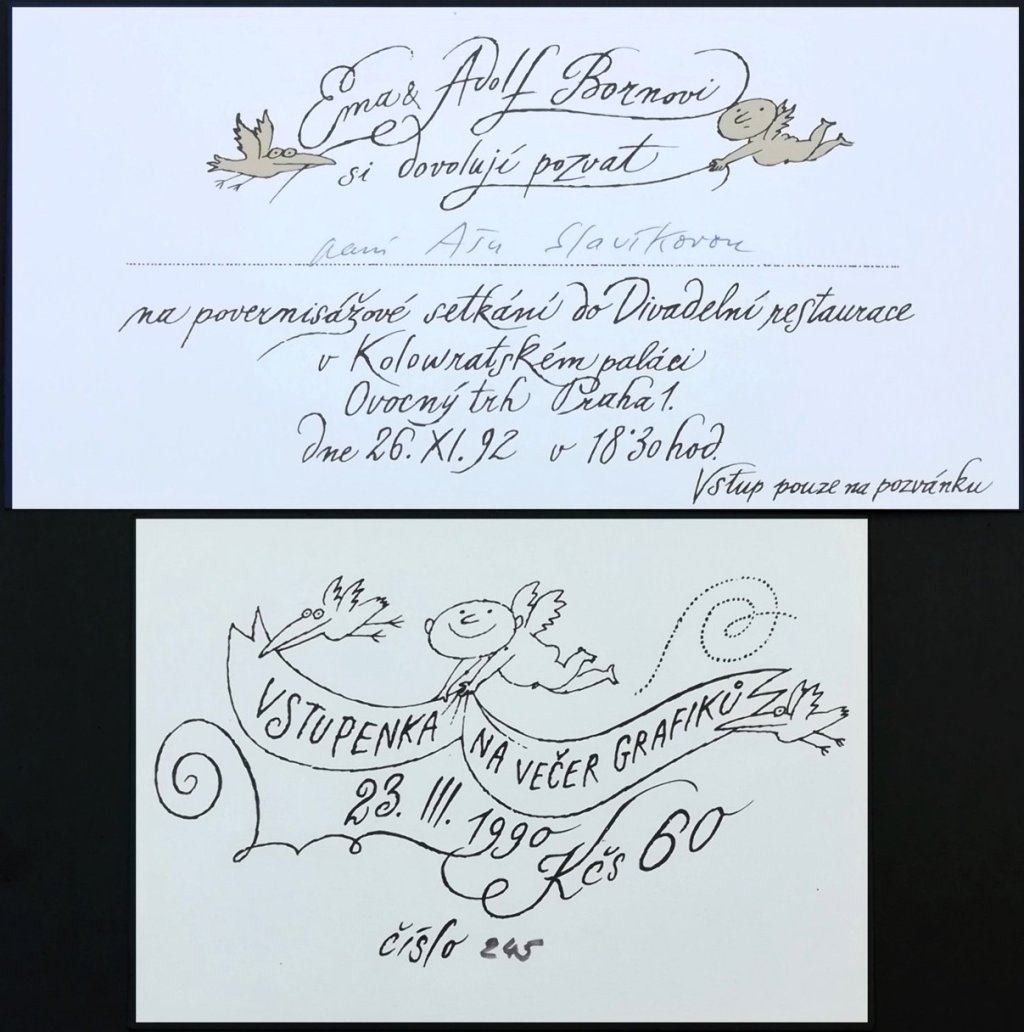 Ema & Adolf Bornovi
si dovolují pozvat
paní Ašu Slavíkovou
na povernisážové setkání do Divadelní restaurace
v Kolowratském paláci
Ovocný trh Praha 1.
dne 26. XI. 92 v 18·30 hod.
Vstup pouze na pozvánku
VSTUPENKA NA VEČER GRAFIKŮ
23. III. 1990
Kčs 60
číslo 245